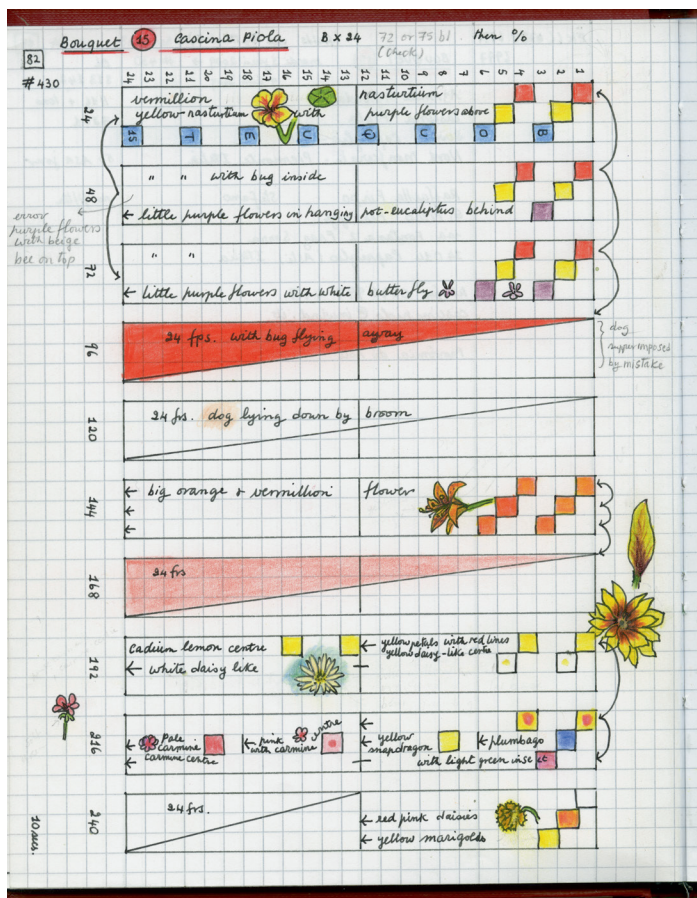 Bouquet 15 Cascina Piola 8 x 24 72 or 75 bl. then %
(check)
82
#430
24 23 22 21 20 19 18 17 16 15 14 13 12 11 10 9 8 7 6 5 4 3 2 1
24
vermillion nasturtium
yellow nasturtium with purple flowers above
15 T E U Q U O B
48
" " with bug inside
← little purple flowers in hanging pot-eucaliptus behind
error
purple flowers
with beige
bee on top
72
" "
← little purple flowers with white butterfly
96
24 fps. with bug flying away
dog
superimposed
by mistake
120
24 frs. dog lying down by broom
144
← big orange & vermillion flower
←
←
168
24 frs
192
Cadium lemon centre ← yellow petals with red lines
yellow daisy-like centre
← white daisy like
216
←
← Pale carmine ← pink with carmine centre ← yellow snapdragon ← plumbago
← carmine centre with light green insect
240
24 frs.
← red pink daisies
← yellow marigolds
10 secs.